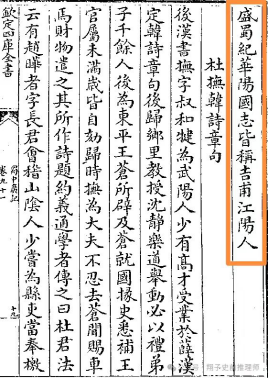 盛蜀紀華陽國志皆稱吉甫江陽人
杜撫韓詩章句
後漢書撫字叔和犍為武陽人少有髙才受業於薛漢
定韓詩章句後歸鄉里教授沈静樂道舉動必以禮弟
子千餘人後為東平王蒼所辟及蒼就國掾史悉補王
官屬未滿歲皆自劾歸時撫為大夫不忍去蒼聞賜車
馬財物遣之其所作詩題約義通學者傳之曰杜君法
云有趙曄者字長君會稽山陰人少嘗為縣吏當奉檄
欽定四庫全書
卷九十一